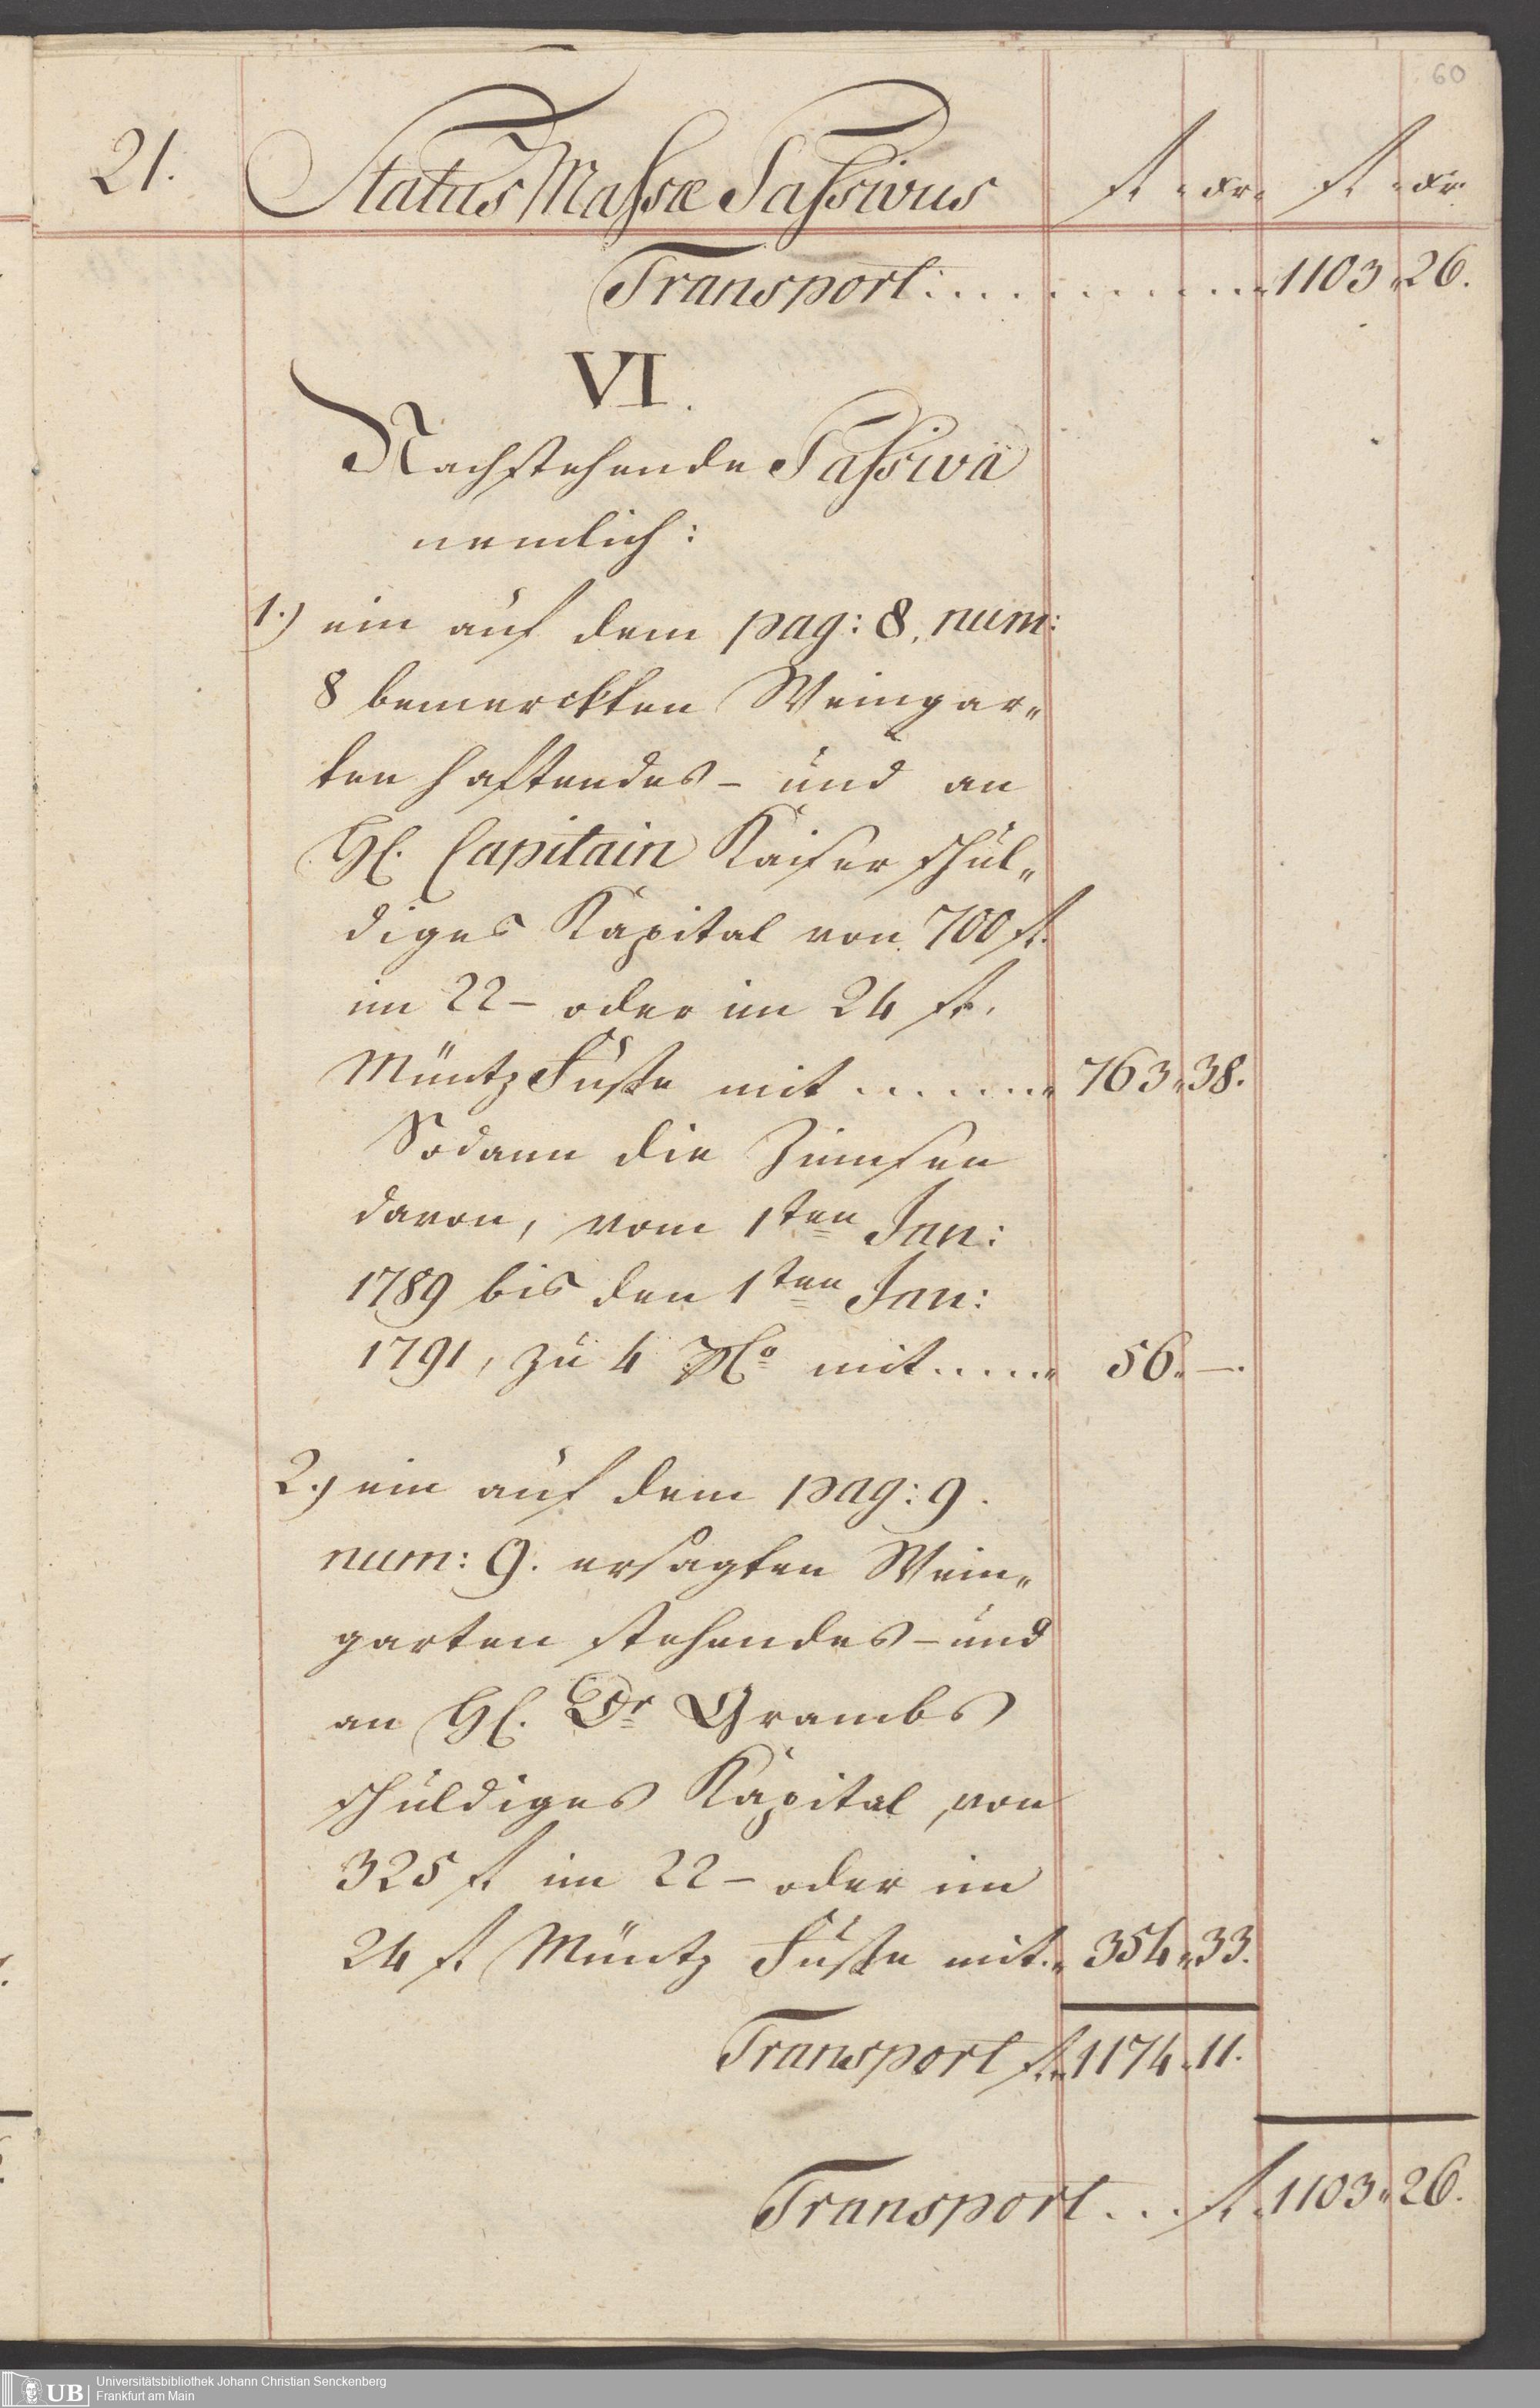 60
21. Status Massæ Passivus fl. xr. fl. xr.
Transport: . . . . . . . . . . . 1103 " 26.
VI.
Nachstehende Passiva
nemlich:
1.) ein auf dem pag: 8. num:
8 bemerckten Weingar„
ten haftendes – und an
H. Capitain Kaiser schul„
diges Kapital von 700 fl.
im 22 – oder im 24 fl.
Müntz Fuße mit . . . . . . . " 763 " 38.
Sodann die Zinnsen
davon, vom 1ten Jan:
1789 bis den 1ten Jan:
1791, zu 4 PCo mit . . . . . " 56. " —.
2.) ein auf dem pag: 9.
num: 9. ersagten Wein„
garten stehendes – und
an H. Dr Grambs
schuldiges Kapital, von
325 fl im 22 – oder im
24 fl. Müntz Fuße mit . . " 354 " 33.
Transport fl. " 1174 " 11.
Transport . . . fl. " 1103 " 26.
UB Universitätsbibliothek Johann Christian Senckenberg
Frankfurt am Main